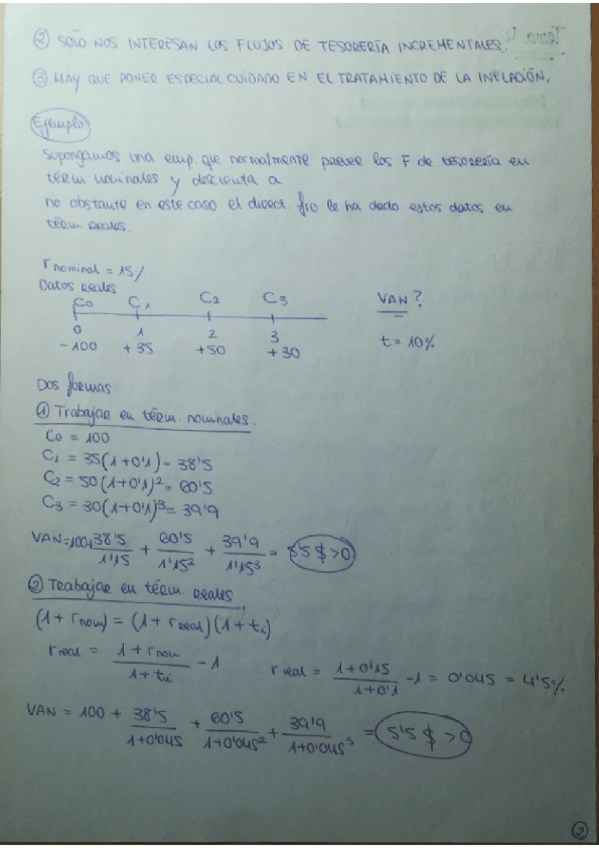 ② SÓLO NOS INTERESAN LOS FLUJOS DE TESORERÍA INCREMENTALES.
③ HAY QUE PONER ESPECIAL CUIDADO EN EL TRATAMIENTO DE LA INFLACIÓN.
Ejemplo
Supongamos una emp. que normalmente prevee los F de tesorería en
térm nominales y descienta a
no obstante en este caso el direct. fro le ha dado estos datos en
térm reales.
r nominal = 15%
Datos Reales
C0 C1 C2 C3 VAN?
0 1 2 3
-100 +35 +50 +30 t = 10%
Dos formas
① Trabajar en térm. nominales.
C0 = 100
C1 = 35(1+0'1) = 38'5
C2 = 50(1+0'1)² = 60'5
C3 = 30(1+0'1)³ = 39'9
VAN = 100 + 38'5/1'15 + 60'5/1'15² + 39'9/1'15³ = 5'5 $ > 0
② Trabajar en térm. reales
(1 + rnom) = (1 + rreal)(1 + ti)
rreal = 1 + rnom/1 + ti - 1 rreal = 1+0'15/1+0'1 - 1 = 0'045 = 4'5%
VAN = 100 + 38'5/1+0'045 + 60'5/1+0'045² + 39'9/1+0'045³ = 5'5 $ > 0
②